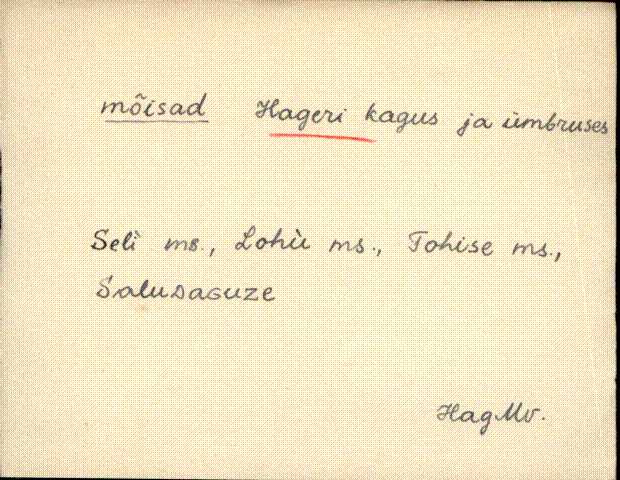 mõisad Hageri kagus ja ümbruses
Seli ms., Lohù ms., Tohise ms.,
Salusaguze
HagMv.